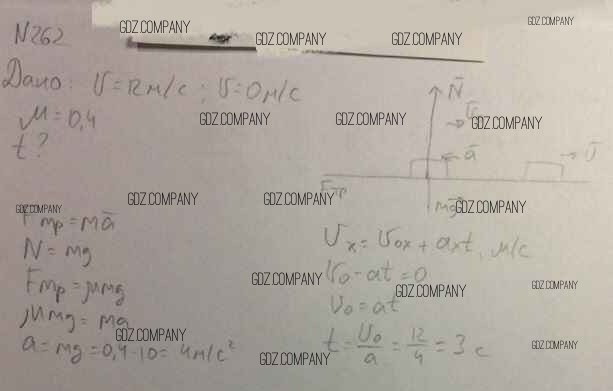 N262
Дано: V = 12 м/с ; V = 0 м/с
μ = 0,4
t ?
N̄
v̄
ā
v̄
Fтр
mḡ
Fтр = mā
N = mg
Fтр = μmg
μmg = ma
a = mg = 0,4·10 = 4 м/с²
Vx = V0x + axt, м/с
V0 - at = 0
V0 = at
t = V0/a = 12/4 = 3 с
GDZ.COMPANY
GDZ.COMPANY
GDZ.COMPANY
GDZ.COMPANY
GDZ.COMPANY
GDZ.COMPANY
GDZ.COMPANY
GDZ.COMPANY
GDZ.COMPANY
GDZ.COMPANY
GDZ.COMPANY
GDZ.COMPANY
GDZ.COMPANY
GDZ.COMPANY
GDZ.COMPANY
GDZ.COMPANY
GDZ.COMPANY